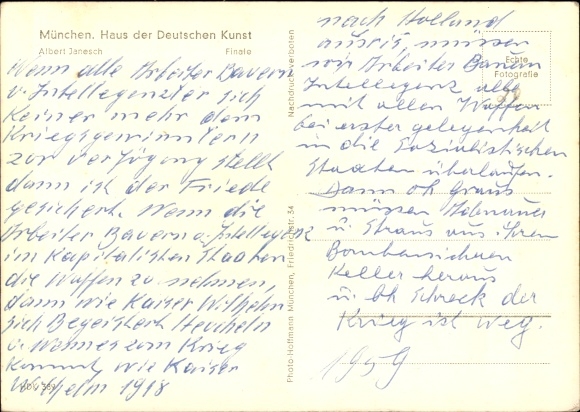 München. Haus der Deutschen Kunst
Albert Janesch Finale
Wenn alle Arbeiter Bauern
u. Intellegenzler sich
keiner mehr dem
Kriegsgewinnlern
zur verfügung stellt
dann ist der Friede
gesichert. Wenn die
Arbeiter Bauern u. Intellegenz
im Kapitalisten Staaten
die Waffen zu nehmen,
dann wie Kaiser Wilhelm
sich Begeistert Heucheln
u. zum Krieg
kommt, wie Kaiser
Wilhelm 1918
nach Holland
ausris, müssen
wir Arbeiter Bauern
Intellegenz alle
mit allen Waffen
bei erster gelegenheit
in die Sozialistischen
Staaten überlaufen.
Dann oh graus
müssen Adenauer
u. Straus aus ihren
Bombensicheren
Keller heraus
u. oh Schreck der
Krieg ist weg.
1959
Echte
Fotografie
Nachdruck verboten
Photo-Hoffmann München, Friedrichstr. 34